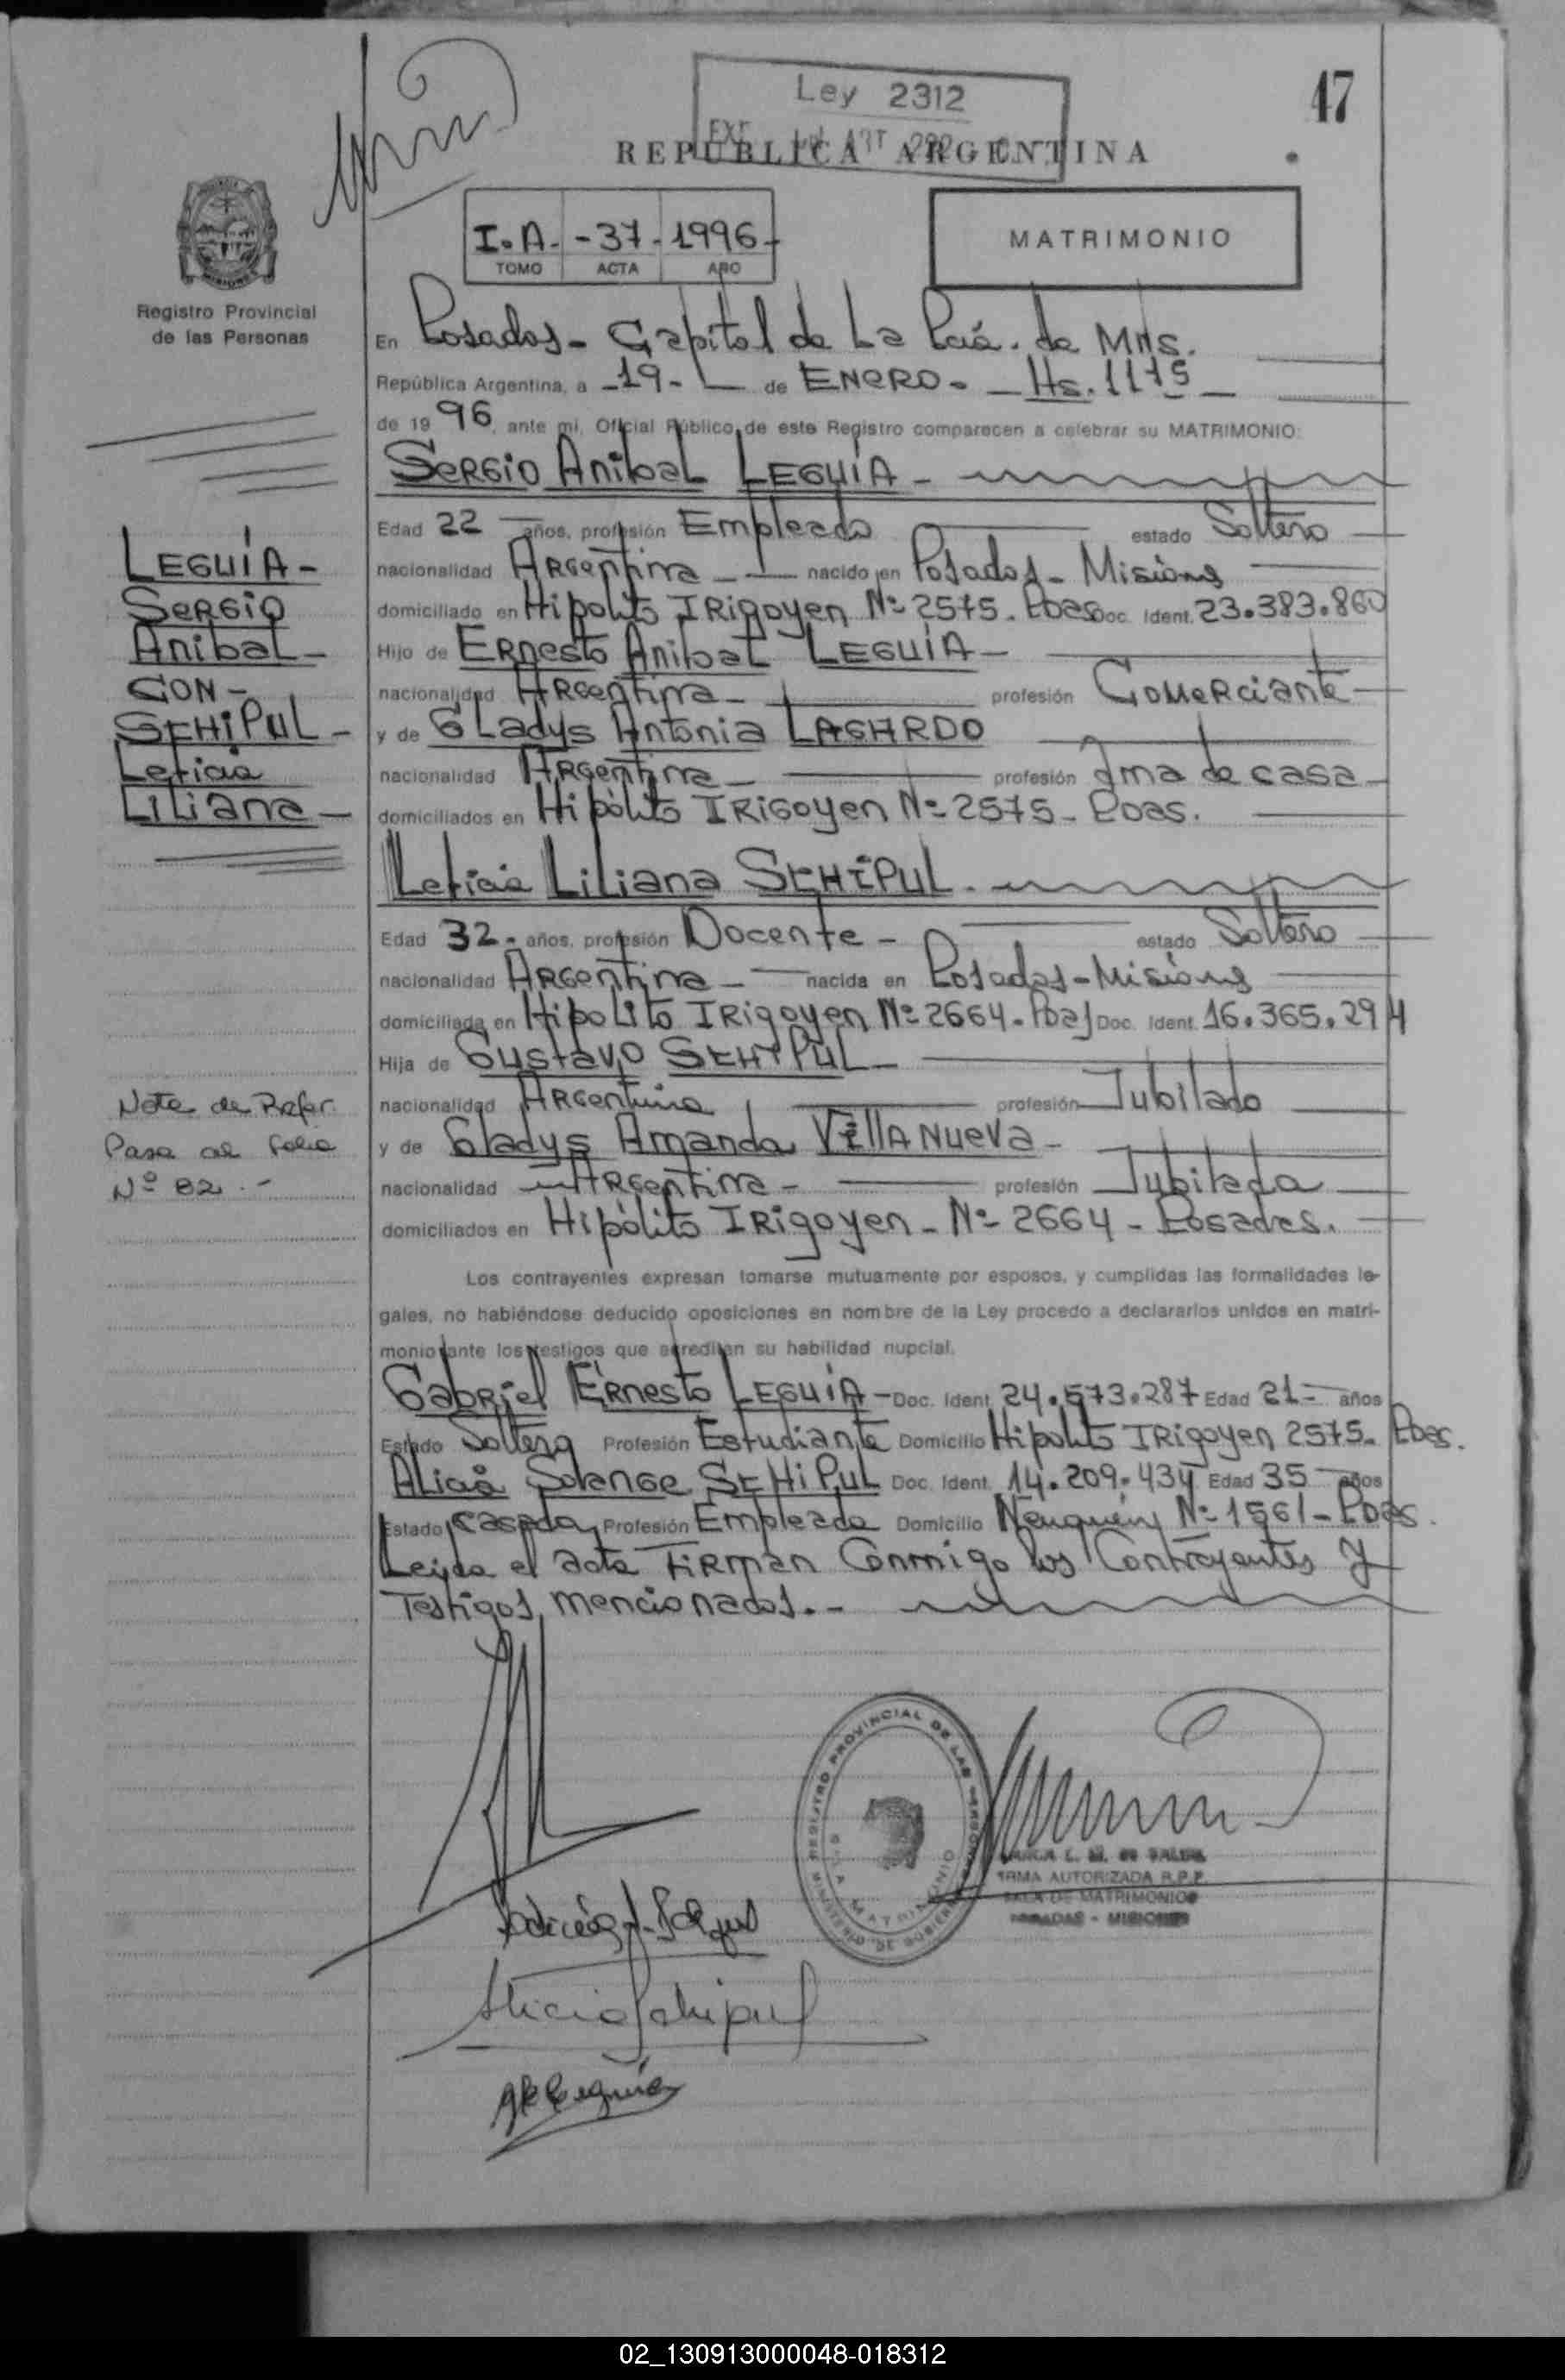 47
Ley 2312
REPUBLICA ARGENTINA
I.A. - -37- 1996-
TOMO ACTA AÑO
MATRIMONIO
Registro Provincial
de las Personas
En Posadas - Capital de La Pcia. de Mnes.
República Argentina, a -19- de ENERO - Hs. 1175
de 1996, ante mi, Oficial Público de este Registro comparecen a celebrar su MATRIMONIO:
SERGIO Anibal LEGUÍA -
Edad 22 años, profesión Empleado estado Soltero
nacionalidad ARGentina - nacido en Posadas - Misiones
domiciliado en Hipolito IRigoyen Nº 2575. Pdas Doc. Ident. 23.383.860
Hijo de ERnesto Anibal LEGUÍA -
nacionalidad ARGentina - profesión Comerciante
y de GLadys Antonia
nacionalidad ARGentina - profesión Ama de casa -
domiciliados en Hipólito IRiGoyen Nº 2575 - Pdas.
Leticia Liliana SCHIPUL -
Edad 32 - años, profesión Docente - estado Soltera
nacionalidad ARGentina - nacida en Posadas - Misiones
domiciliada en Hipolito IRigoyen Nº 2664. Pdas Doc. Ident. 16.365.294
Hija de Gustavo SCHIPUL -
nacionalidad ARGentina profesión Jubilado
y de Gladys Amanda VillaNueva -
nacionalidad ARGentina - profesión Jubilada
domiciliados en Hipólito IRigoyen - Nº 2664 - Posadas.
Los contrayentes expresan tomarse mutuamente por esposos, y cumplidas las formalidades le-
gales, no habiéndose deducido oposiciones en nombre de la Ley procedo a declararlos unidos en matri-
monio ante los testigos que acreditan su habilidad nupcial.
Gabriel ERnesto LEGUÍA - Doc. Ident. 24.573.287 Edad 21 - años
Estado Soltero Profesión Estudiante Domicilio Hipolito IRigoyen 2575. Pdas.
Alicia Solange SCHIPUL Doc. Ident. 14.209.434 Edad 35 años
Estado Casada Profesión Empleada Domicilio Neuquén Nº 1561 - Pdas.
Leida el acta FIRMan Conmigo los Contrayentes y
Testigos mencionados. -
LEGUÍA -
SERGIO
Anibal -
CON -
SCHIPUL -
Leticia
Liliana -
Nota de Refer.
Pasa al folio
Nº 82. -
REGISTRO PROVINCIAL DE LAS PERSONAS
SALA MATRIMONIO
MINISTERIO DE GOBIERNO
FIRMA AUTORIZADA R.P.P.
SALA DE MATRIMONIOS
POSADAS - MISIONES
Alicia Schipul
02_130913000048-018312